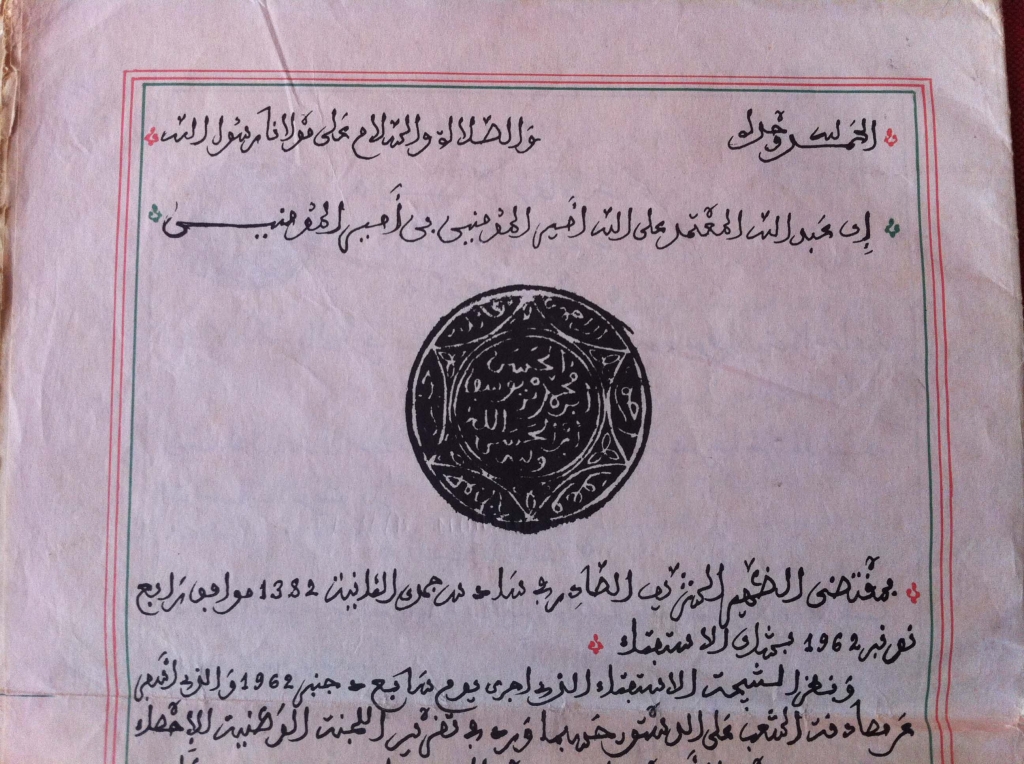 الحمد لله وحده والصلاة والسلام على مولانا رسول الله
إن عبد الله المعتمد على الله أمير المؤمنين بن أمير المؤمنين
الحسن
بن محمد بن يوسف
بن الحسن الله
وليه
بمقتضى الظهير الشريف الصادر في سادس جمدى الثانية 1382 موافق رابع
نونبر 1962 بشأن الاستفتاء
ونظرا لنتيجة الاستفتاء الذي اجري يوم سابع دجنبر 1962 والذي أفضى
عن مصادقة الشعب على الدستور حسبما ورد في تقرير اللجنة الوطنية للإحصاء